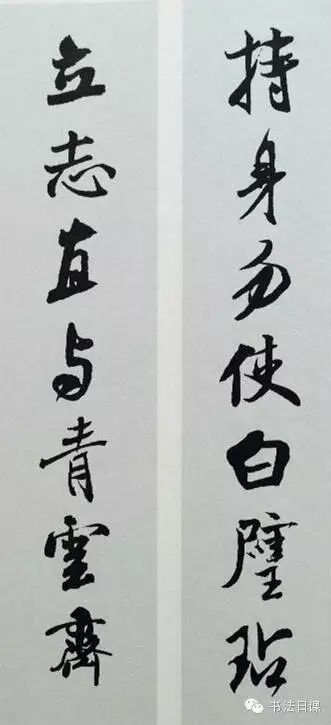 持身勿使白璧玷
立志直与青雲齊
书法日课